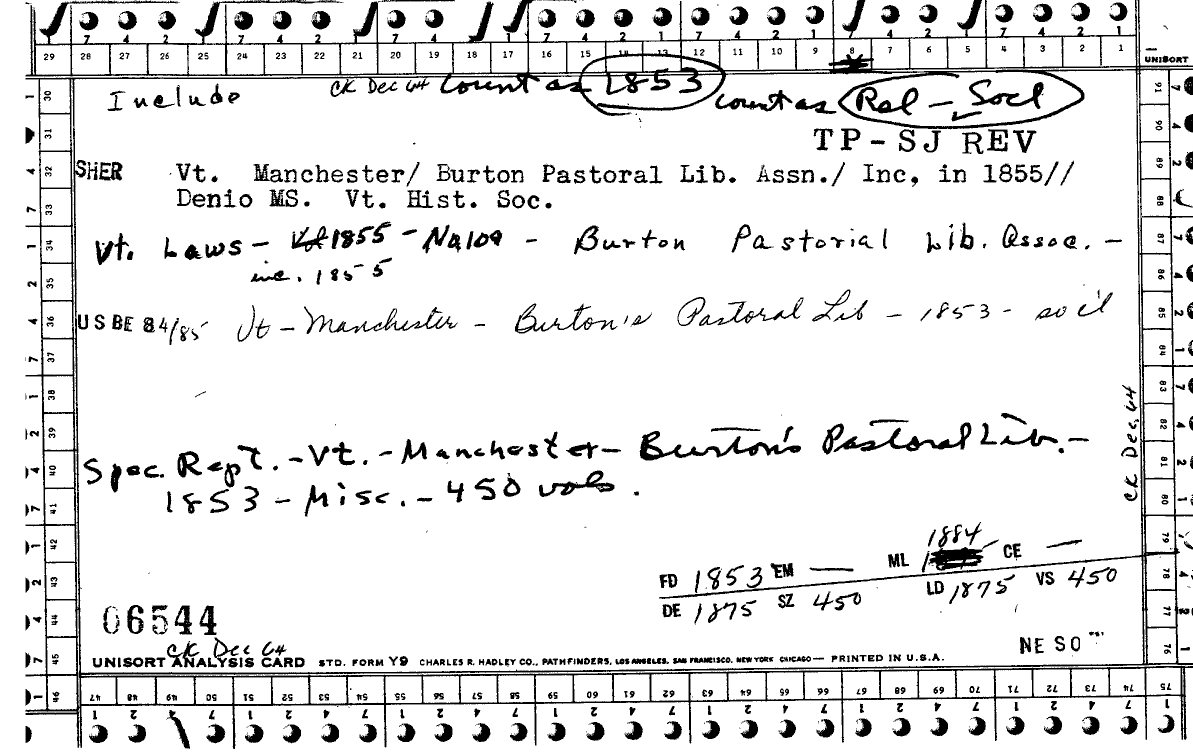 7 4 2 1 7 4 2 1 7 4 2 1 7 4 2 1 7 4 2 1 7 4 2 1 7 4 2 1
29 28 27 26 25 24 23 22 21 20 19 18 17 16 15 13 12 11 10 9 8 7 6 5 4 3 2 1 UNISORT
Include CK Dec 64 count as 1853 count as Rel - Socl
TP-SJ REV
SHER Vt. Manchester/ Burton Pastoral Lib. Assn./ Inc, in 1855//
Denio MS. Vt. Hist. Soc.
Vt. Laws - 1855 - No 109 - Burton Pastorial Lib. Assoc. -
inc. 1855
USBE 84/85 Vt - Manchester - Burton's Pastoral Lib - 1853 - soc'l
CK Dec, 64
Spec. Rept. - Vt. - Manchester - Burton's Pastoral Lib. -
1853 - Misc. - 450 vols.
1884
FD 1853 EM — ML CE —
DE 1875 SZ 450 LD 1875 VS 450
06544
CK Dec 64
NE SO
UNISORT ANALYSIS CARD STD. FORM Y9 CHARLES R. HADLEY CO., PATHFINDERS, LOS ANGELES, SAN FRANCISCO, NEW YORK CHICAGO — PRINTED IN U.S.A.
30 31 32 33 34 35 36 37 38 39 40 41 42 43 44 45 46
47 48 49 50 51 52 53 54 55 56 57 58 59 60 61 62 63 64 65 66 67 68 69 70 71 72 73 74 75
76 77 78 79 80 81 82 83 84 85 86 87 88 89 90 91